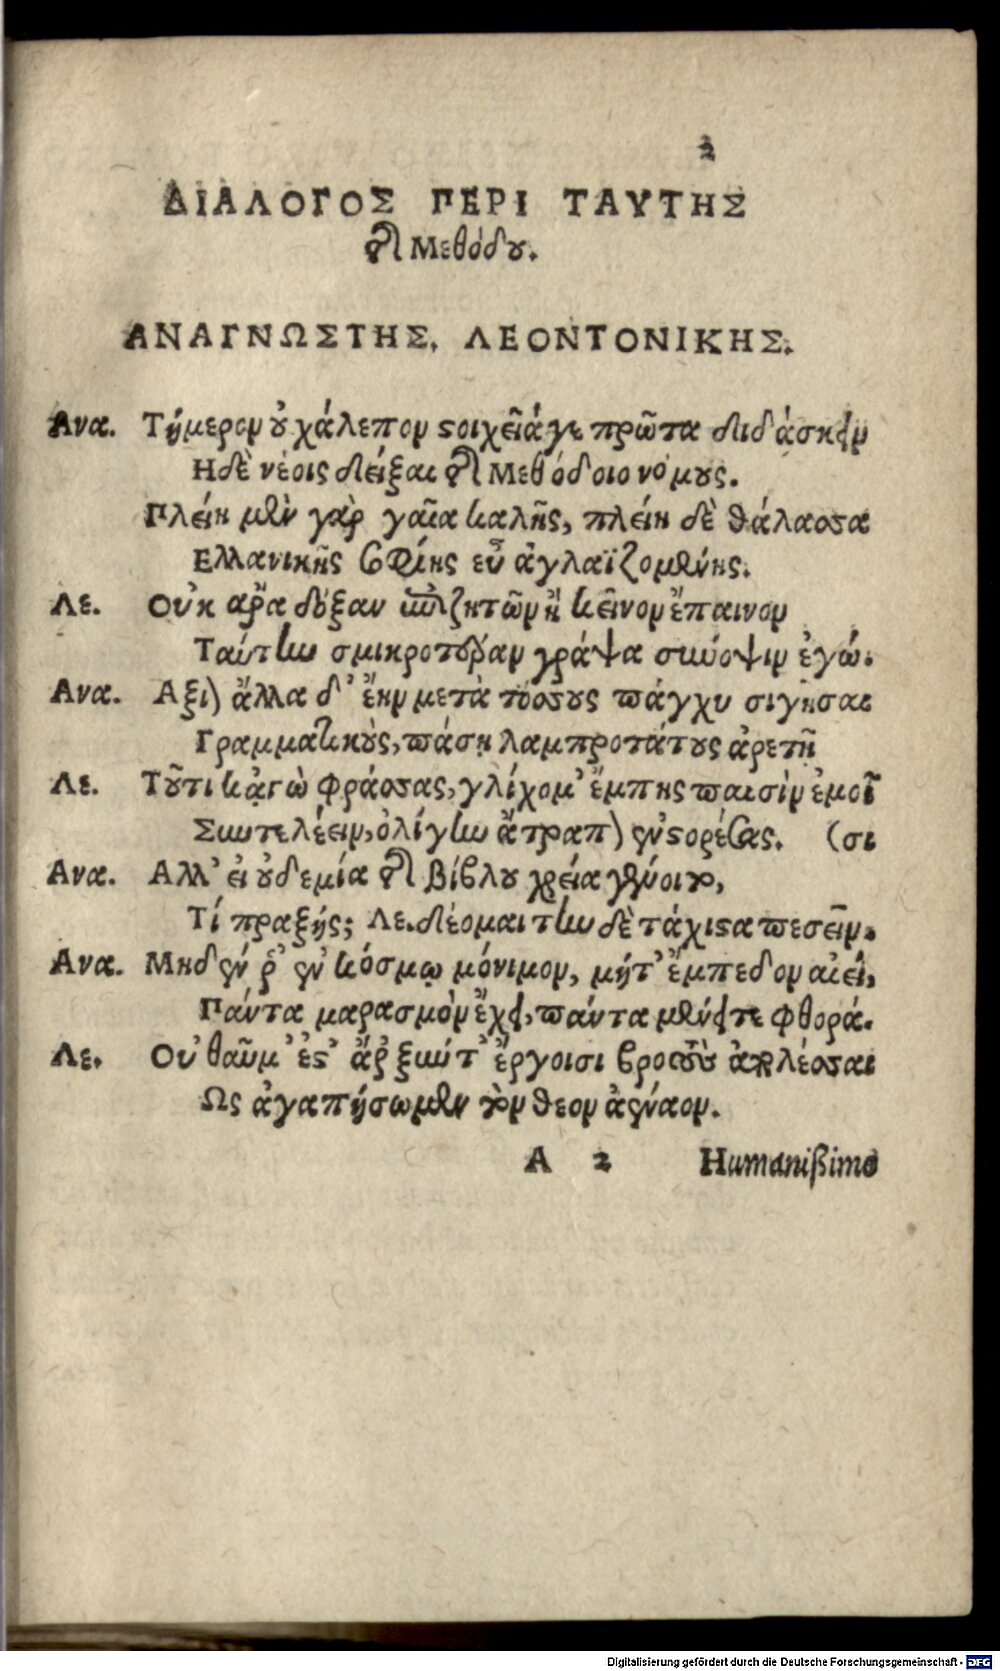 2
ΔΙΑΛΟΓΟΣ ΠΕΡΙ ΤΑΥΤΗΣ
τῆς Μεθόδου.
ΑΝΑΓΝΩΣΤΗΣ. ΛΕΟΝΤΟΝΙΚΗΣ.
Ανα. Τήμερον οὐ χάλεπον στοιχεῖά γε πρῶτα διδάσκειν
Ηδὲ νέοις δείξαι τῆς Μεθόδοιο νόμους.
Πλείη μὲν γὰρ γαῖα καλῆς, πλείη δὲ θάλασσα
Ελλανικῆς σοφίης εὖ ἀγλαϊζομένης.
Λε. Οὐκ ἄρα δόξαν ζητῶν ἢ κεῖνον ἔπαινον
Ταύτην σμικροτόραν γράψα σύνοψιν ἐγώ.
Ανα. Αξι) ἄλλα δ' ἔην μετὰ τόσους πάγχυ σιγῆσαι
Γραμματικοὺς, πάσῃ λαμπροτάτους ἀρετῇ
Λε. Τοῦτι κἀγὼ φράσσας, γλίχομ' ἔμπης παισὶν ἐμοῖ
Συντελέειν, ὀλίγην ἄτραπ) ἐνστορέσας. (σι
Ανα. Αλλ' εἰ οὐδεμία τῆς βίβλου χρεία γένοιτο,
Τί πραξῄς; Λε. δέομαι τὴν δὲ τάχιστα πεσεῖν.
Ανα. Μηδὲν ῥ' ἐν κόσμῳ μόνιμον, μήτ' ἔμπεδον αἰεί,
Πάντα μαρασμὸν ἔχει, πάντα μένει τε φθορά.
Λε. Οὐ θαῦμ' ἐστ' ἄρ ξύντ' ἔργοισι βροτοὺς ἀπλέσσαι
Ως ἀγαπήσωμεν τὸν θεον ἀέναον.
A 2 Humanißimo
Digitalisierung gefördert durch die Deutsche Forschungsgemeinschaft - DFG